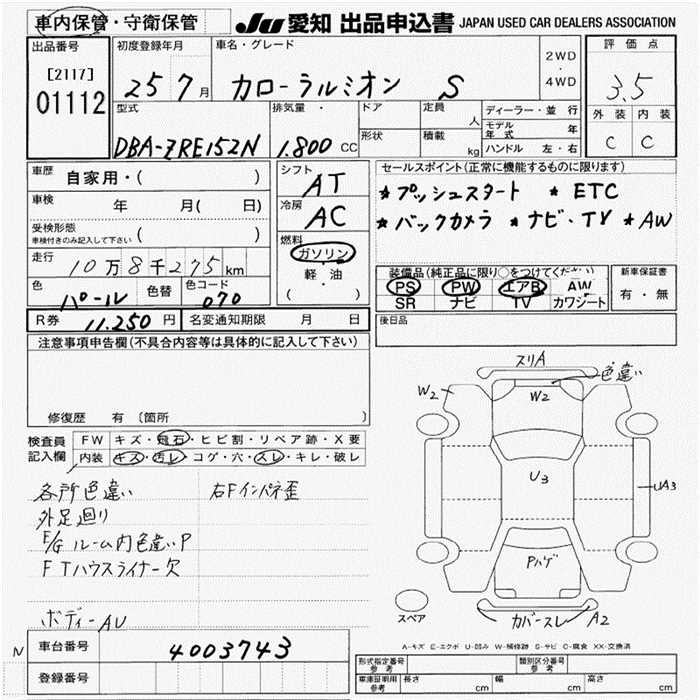 車内保管・守衛保管 JU 愛知 出品申込書 JAPAN USED CAR DEALERS ASSOCIATION
出品番号 初度登録年月 車名・グレード 2WD・4WD 評価点
[2117] 01112 25 7月 カローラルミオン S 3.5
型式 排気量・ ドア 定員 人 ディーラー・並行 外装 内装
モデル年式 年
形状 積載 kg ハンドル 左・右
DBA-ZRE152N 1.800 CC C C
車歴 自家用・( ) シフト AT セールスポイント(正常に機能するものに限ります)
車検 年 月( 日) 冷房 AC ★プッシュスタート ★ETC
受検形態 車検付きのみ記入して下さい ( ) ★バックカメラ ★ナビ・TV ★AW
走行 10万8千275km 燃料 ガソリン・軽・油 ( )
装備品(純正品に限り○をつけてください) 新車保証書
PS PW エアB AW 有・無
SR ナビ TV カワシート
色 パール 色替 色コード 070
R券 11.250円 名変通知期限 月 日 後日品
注意事項申告欄(不具合内容等は具体的に記入して下さい)
修復歴 有 〔箇所 〕
検査員記入欄 FW キズ・飛石・ヒビ割・リペア跡・X要
内装 キズ・汚レ・コゲ・穴・スレ・キレ・破レ
各所色違い 右Fインパネ歪
外足廻り
E/Gルーム内色違いP
FTハウスライナー欠
ボディーAU
スリA
色違い
W2 W2
U3
UA3
Pハゲ
スペア カバースレ A2
A-キズ E-エクボ U-凹み W-補修跡 S-サビ C-腐食 XX-交換済
N 車台番号 4003743
登録番号
形式指定番号 参考 類別区分番号 参考
車庫証明用 参考 長さ cm 幅 cm 高さ cm